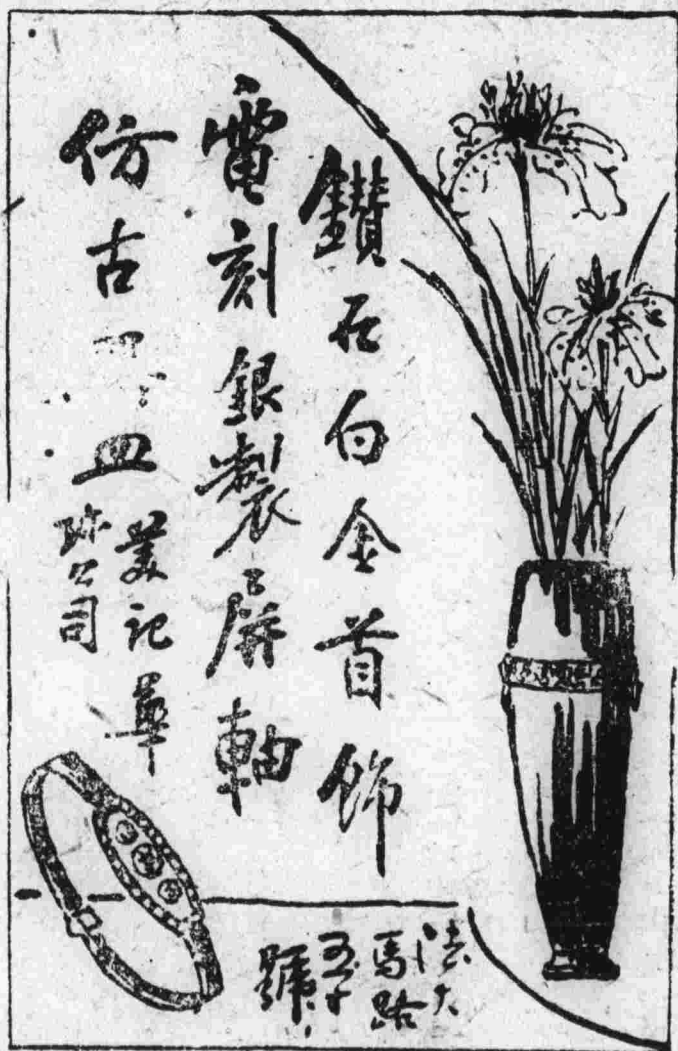 鑽石白金首飾
電刻銀製屏軸
仿古皿
美記華
珎公司
法大
馬路
五十
號